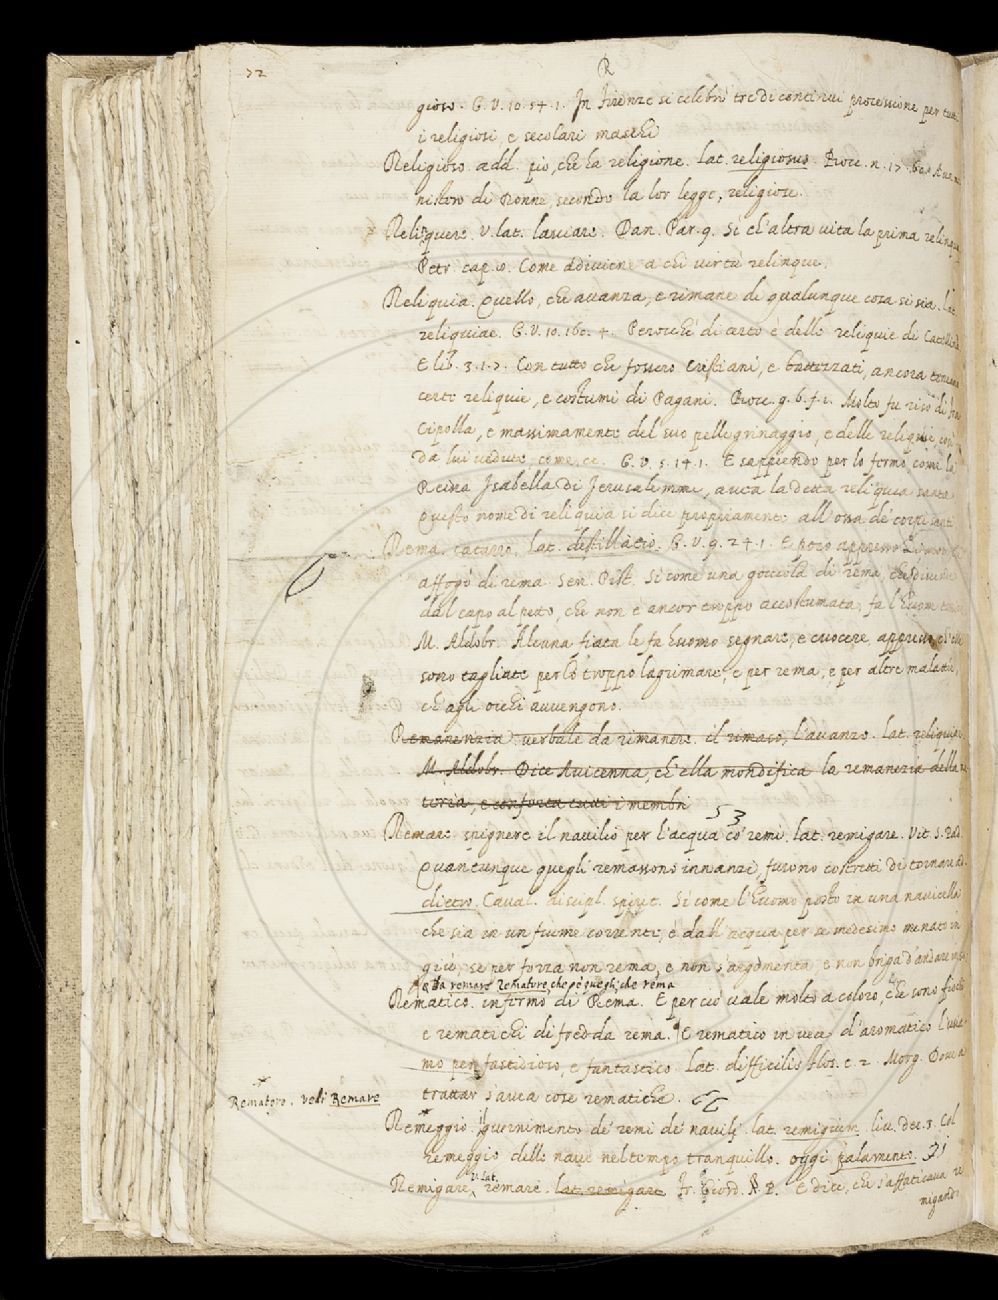 72
R
gioso. G. V. 10. 54. 1. In Firenze si celebrò tre dì continui processione per tutti
i religiosi, e secolari maschi
Religioso. add. pio, che ha religione. lat. religiosus. Bocc. n. 17.
di Donne, secondo la lor legge, religiose.
Relinquere. V. lat. lasciare. Dan. Par. 9. Sì ch'altra vita la prima relinqua
Petr. cap. Come adiviene a chi virtù relinque.
Reliquia. Quello, che avanza, e rimane di qualunque cosa si sia. lat.
reliquiae. G. V. 10. Perocchè di certo è delle reliquie di
E lib. 3. 1. 7. Con tutto che fossero Cristiani, e battezzati, ancora
certe reliquie, e costumi di Pagani. Bocc. g. 6. f. 1. Molto fu riso di fra
Cipolla, e massimamente del suo pellegrinaggio, e delle reliquie così
da lui vedute, come, ec. G. V. 5. 14. 1. E sappiendo per lo fermo, come la
Reina Isabella di Jerusalemme, avea la detta reliquia santa
Questo nome di reliquia si dice propriamente all'ossa de' corpi santi
Rema. catarro, lat. destillatio. G. V. 9. 24. 1. E poco appresso
affogò di rema. Sen. Pist. Sì come una gocciola di rema, che
dal capo al petto, che non è ancor troppo accostumata, fa l'huom
M. Aldobr. Alcuna fiata le fa huomo segnare, e cuocere, appresso ch'elle
sono tagliate per lo troppo lagrimare, e per rema, e per altre malattie,
ch'agli occhi avvengono.
Remanenzia. verbale da rimanere. il rimaso, l'avanzo. lat. reliquiae
M. Aldobr. Dice Avicenna, ch'ella mondifica la remanenzia della ma
teria, e conforta tutti i membri
53
Remare. spignere il navilio per l'acqua co' remi. lat. remigare. Vit. S. Pad.
Quantunque quegli remassono innanzi, furono costretti di tornare ad
dietro. Caval. discipl. spirit. Sì come l'huomo posto in una navicella
che sia in un fiume corrente, e dall'acqua per se medesimo menato in
giù, se per forza non rema, e non s'argomenta, e non briga d'andare
Da remare rematore, che è quegli, che rema
Rematico. infermo di Rema. E per ciò vale molto a coloro, che sono fiochi
e rematichi di fredda rema. E rematico in vece d'aromatico
mo per fastidioso, e fantastico. Lat. difficilis Flos. c. 2. Morg. Dove a
trattar s'avea cose rematiche.
Rematore. vedi Remare
Remeggio. il guernimento de' remi de' navili. lat. remigium. liv. dec. 3. Col
remeggio delle nave nel tempo tranquillo. oggi palamento.
V. lat.
Remigare, remare. lat. remigare. Fr. Giord. P. E dice, che s'affaticava re
migando